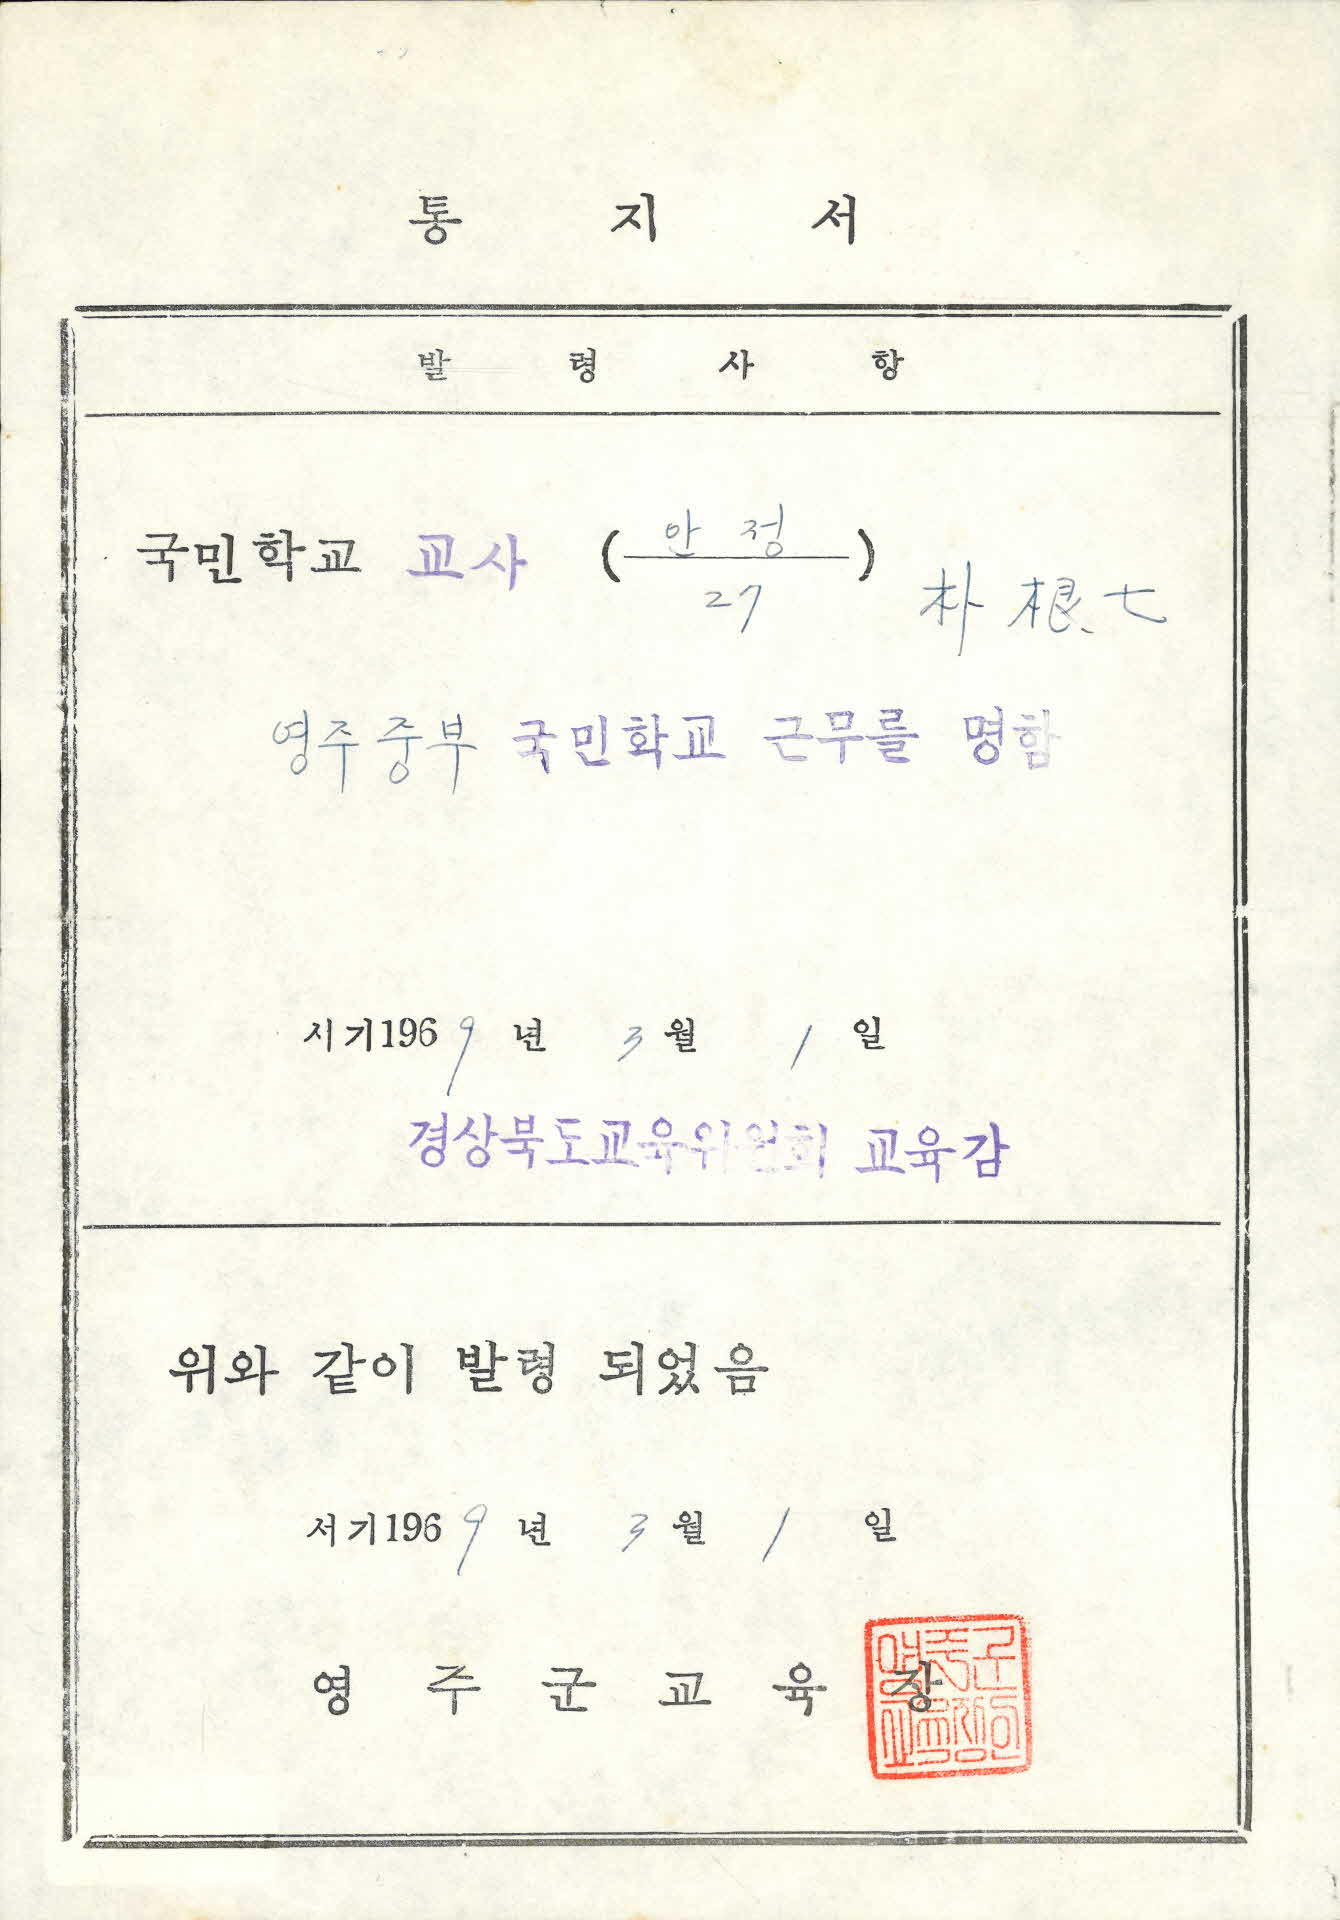 통 지 서
발 령 사 항
국민학교 교사 (안정 27) 朴根七
영주중부 국민학교 근무를 명함
서기1969년 3월 1일
경상북도교육위원회 교육감
위와 같이 발령 되었음
서기1969년 3월 1일
영 주 군 교 육 장
영주군교육장인